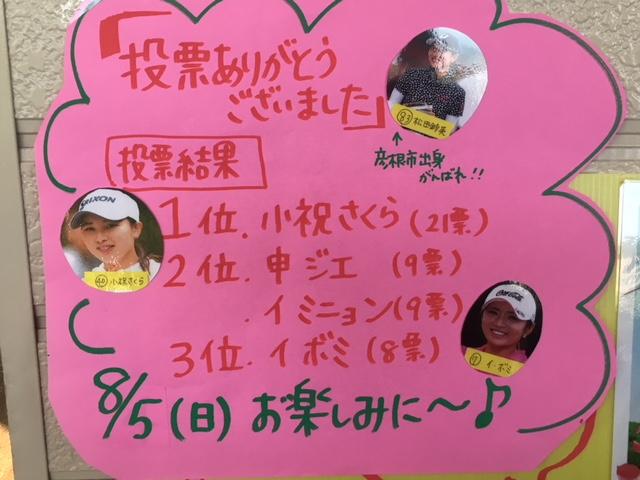 「投票ありがとう
ございました」
㊳松田鈴英
↑
彦根市出身
がんばれ!!
投票結果
SRIXON
㊵小祝さくら
1位.小祝さくら(21票)
2位.申ジエ (9票)
.イミニョン(9票)
3位.イボミ(8票)
⑦イ・ボミ
8/5(日)お楽しみに〜♪